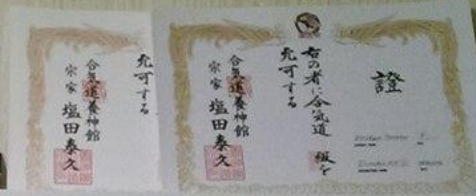 證
右の者に合氣道 級を
允可する
合氣道養神館
宗家 塩田泰久
允可する
合氣道養神館
宗家 塩田泰久